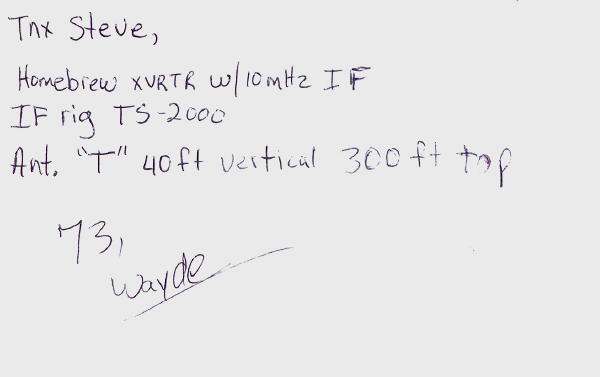 Tnx Steve,
Homebrew XVRTR w/10mHz IF
IF rig TS-2000
Ant. "T" 40ft vertical 300ft top
73,
Wayde